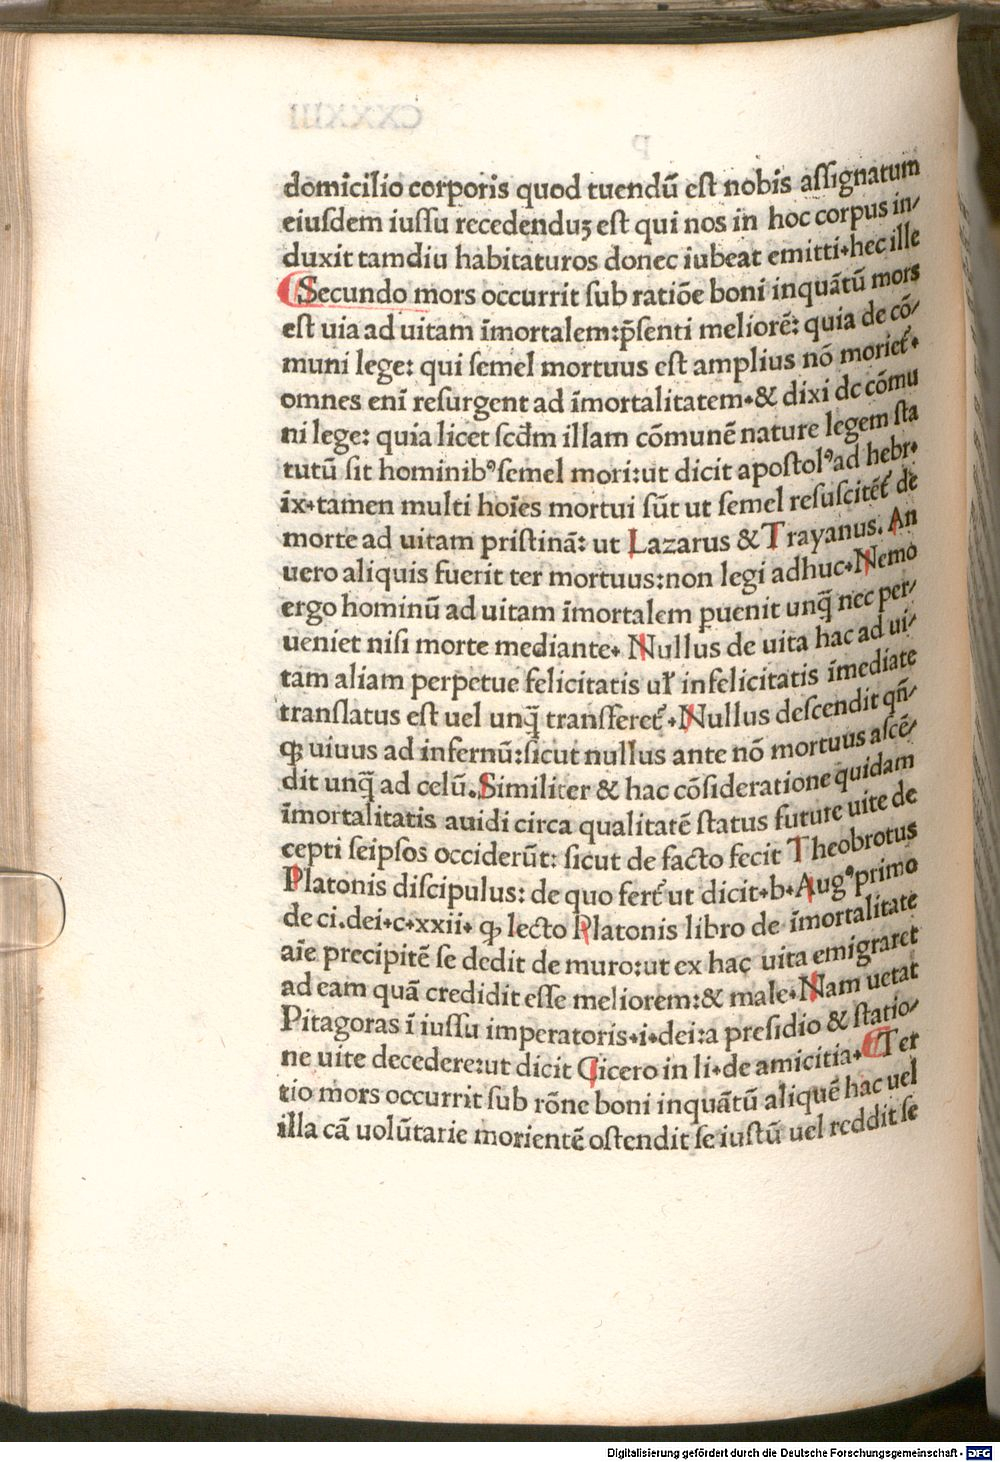 domicilio corporis quod tuendū est nobis assignatum
eiusdem iussu recedenduꝫ est qui nos in hoc corpus in/
duxit tamdiu habitaturos donec iubeat emitti.hec ille
Secundo mors occurrit sub ratiōe boni inquātū mors
est uia ad uitam īmortalem:p̄senti meliorē: quia de cō/
muni lege: qui semel mortuus est amplius nō moriet᷑.
omnes enī resurgent ad īmortalitatem.& dixi de cōmu
ni lege: quia licet scd̄m illam cōmunē nature legem sta
tutū sit hominibꝰ semel mori:ut dicit apostolꝰ ad hebr.
īx.tamen multi hoīes mortui sūt ut semel resuscitēt᷑ de
morte ad uitam pristinā: ut Lazarus & Trayanus. An
uero aliquis fuerit ter mortuus:non legi adhuc.Nemo
ergo hominū ad uitam īmortalem puenit unq̄ nec per/
ueniet nisi morte mediante. Nullus de uita hac ad ui/
tam aliam perpetue felicitatis uł infelicitatis īmediate
translatus est uel unq̄ transferet᷑.Nullus descendit qn̄/
ꝙ uiuus ad infernū:sicut nullus ante nō mortuus ascē/
dit unq̄ ad celū.Similiter & hac cōsideratione quidam
īmortalitatis auidi circa qualitatē status future uite de
cepti seipsos occiderūt: sicut de facto fecit Theobrotus
Platonis discipulus: de quo fert᷑ ut dicit.b.Augꝰ primo
de ci.dei.c.xxii. ꝙ lecto Platonis libro de īmortalitate
aīe precipitē se dedit de muro:ut ex hac uita emigraret
ad eam quā credidit esse meliorem:& male.Nam uetat
Pitagoras ī iussu imperatoris.i.dei:a presidio & statio/
ne uite decedere:ut dicit Cicero in li.de amicitia. Ter
tio mors occurrit sub rōne boni inquātū aliquē hac uel
illa cā uolūtarie morientē ostendit se iustū uel reddit se
Digitalisierung gefördert durch die Deutsche Forschungsgemeinschaft - DFG